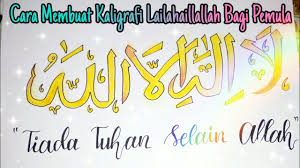 Cara Membuat Kaligrafi Lailahaillallah Bagi Pemula
لا اله الا الله
"Tiada Tuhan Selain Allah"